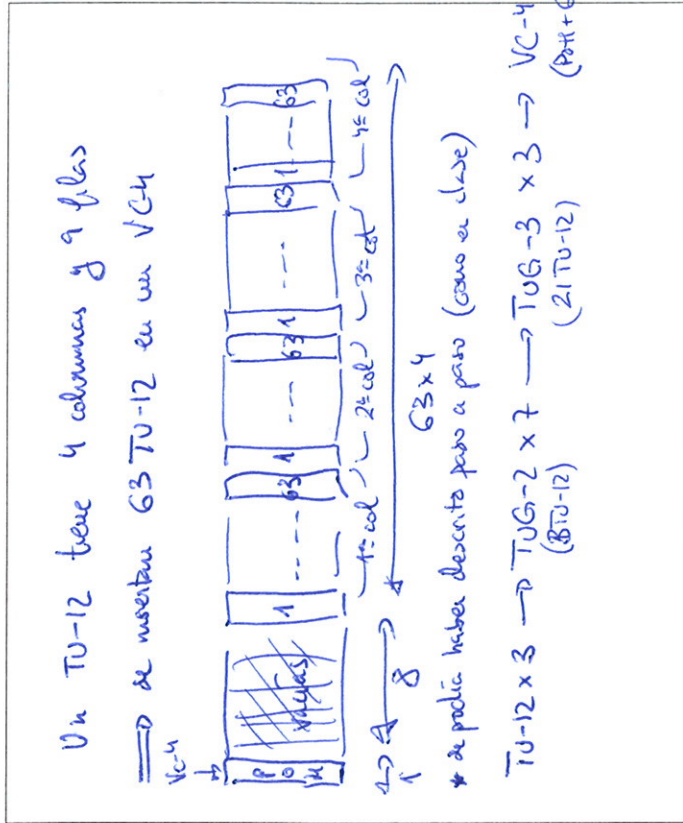 Un TU-12 tiene 4 columnas y 9 filas
=> se insertan 63 TU-12 en un VC-4
VC-4
P O H
vacías
1 --- 63 1 --- 63 1 --- 63 1 --- 63
1ª col 2ª col 3ª col 4ª col
1 8 63x4
* se podía haber descrito paso a paso (como en clase)
TU-12 x 3 → TUG-2 x 7 → TUG-3 x 3 → VC-4
(3TU-12) (21TU-12) (POH+